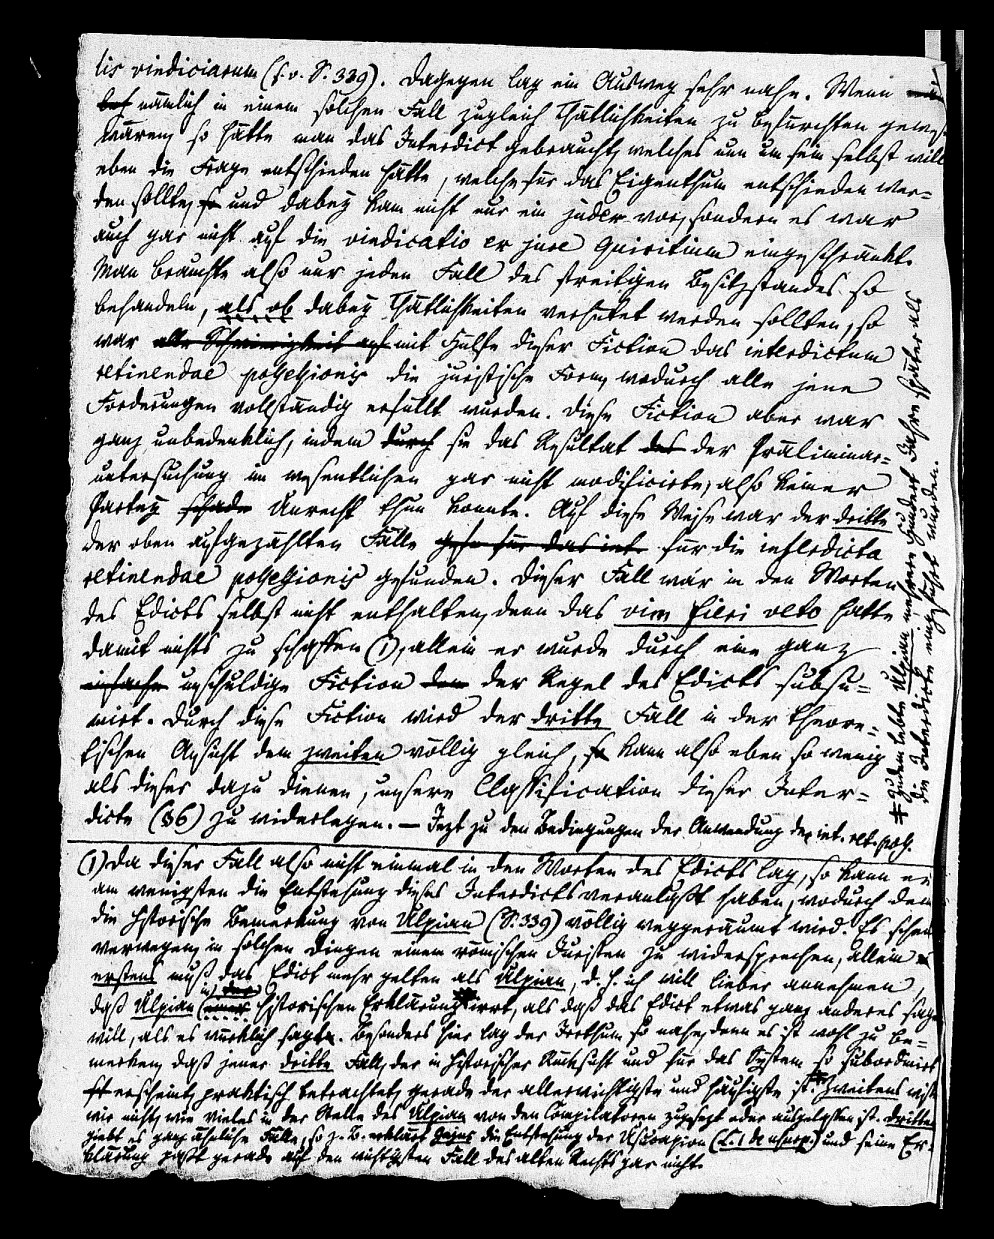 lis vindiciarum (s. o. S. 339). Dagegen lag ein Ausweg sehr nahe. Wenn
nämlich in einem solchen Fall zugleich Thätlichkeiten zu befürchten gewesen
wären, so hätte man das Interdict gebraucht, welches nun um sein selbst will
eben die Frage entschieden hätte, welche für das Eigenthum entschieden wer=
den sollte, und dabey kam nicht nur ein judex vor, sondern es war
auch gar nicht auf die vindicatio ex jure Quiritium eingeschränkt.
Man brauchte also nur jeden Fall des streitigen Besitzstandes so
behandeln, als ob dabey Thätlichkeiten verhütet werden sollten, so
war alle Schwierigkeit auf mit Hülfe dieser Fiction das interdictum
retinendae possessionis die juristische Form, wodurch alle jene
Forderungen vollständig erfüllt wurden. Diese Fiction aber war
ganz unbedenklich, indem durch sie das Resultat des der Präliminar=
untersuchung im wesentlichen gar nicht modificirte, also keiner
Partey Unrecht thun konnte. Auf diese Weise war der dritte
der oben aufgezählten Fälle für die interdicta
retinendae possessionis gefunden. Dieser Fall war in den Worten
des Edicts selbst nicht enthalten, denn das vim fieri veto hatte
damit nichts zu schaffen (1), allein er wurde durch eine ganz
einfache unschuldige Fiction der Regel des Edicts subsu=
mirt. Durch diese Fiction wird der dritte Fall in der theore=
tischen Ansicht dem zweiten völlig gleich, kann also eben so wenig
als dieser dazu dienen, unsere Classification dieser Inter=
dicte (§6) zu widerlegen. — Jezt zu den Bedingungen der Anwendung des int. ret. poss.
(1) Da dieser Fall also nicht einmal in den Worten des Edicts lag, so kann er
am wenigsten die Entstehung dieses Interdicts veranlaßt haben, wodurch denn
die historische Bemerkung von Ulpian (S. 339) völlig weggeräumt wird. Es schei
verwegen, in solchen Dingen einem römischen Juristen zu widersprechen, allein
erstens muß das Edict mehr gelten als Ulpian, d. h. ich will lieber annehmen,
daß Ulpian in der historischen Erklärung* irrt, als daß das Edict etwas ganz anderes sagen
will, als es wirklich sagt. Besonders hier lag der Irrthum so nahe, denn es ist wohl zu be=
merken, daß jener dritte Fall, der in historischer Rücksicht und für das System so subordinirt
erscheint, praktisch betrachtet, gerade der allerwichtigste und häufigste ist. Zweitens wissen
wir nicht, wie vieles in der Stelle des Ulpian von den Compilatoren zugesezt oder ausgelassen ist. Drittens
giebt es ganz ähnliche Fälle, so z. B. erklärt Gajus die Entstehung der Usucapion (L. 1 de usurp.) und seine Er=
klärung paßt gerade auf den wichtigsten Fall des alten Rechts gar nicht.
* Zudem lebte Ulpian mehrere hundert Jahre später als
die Interdicte eingeführt wurden.